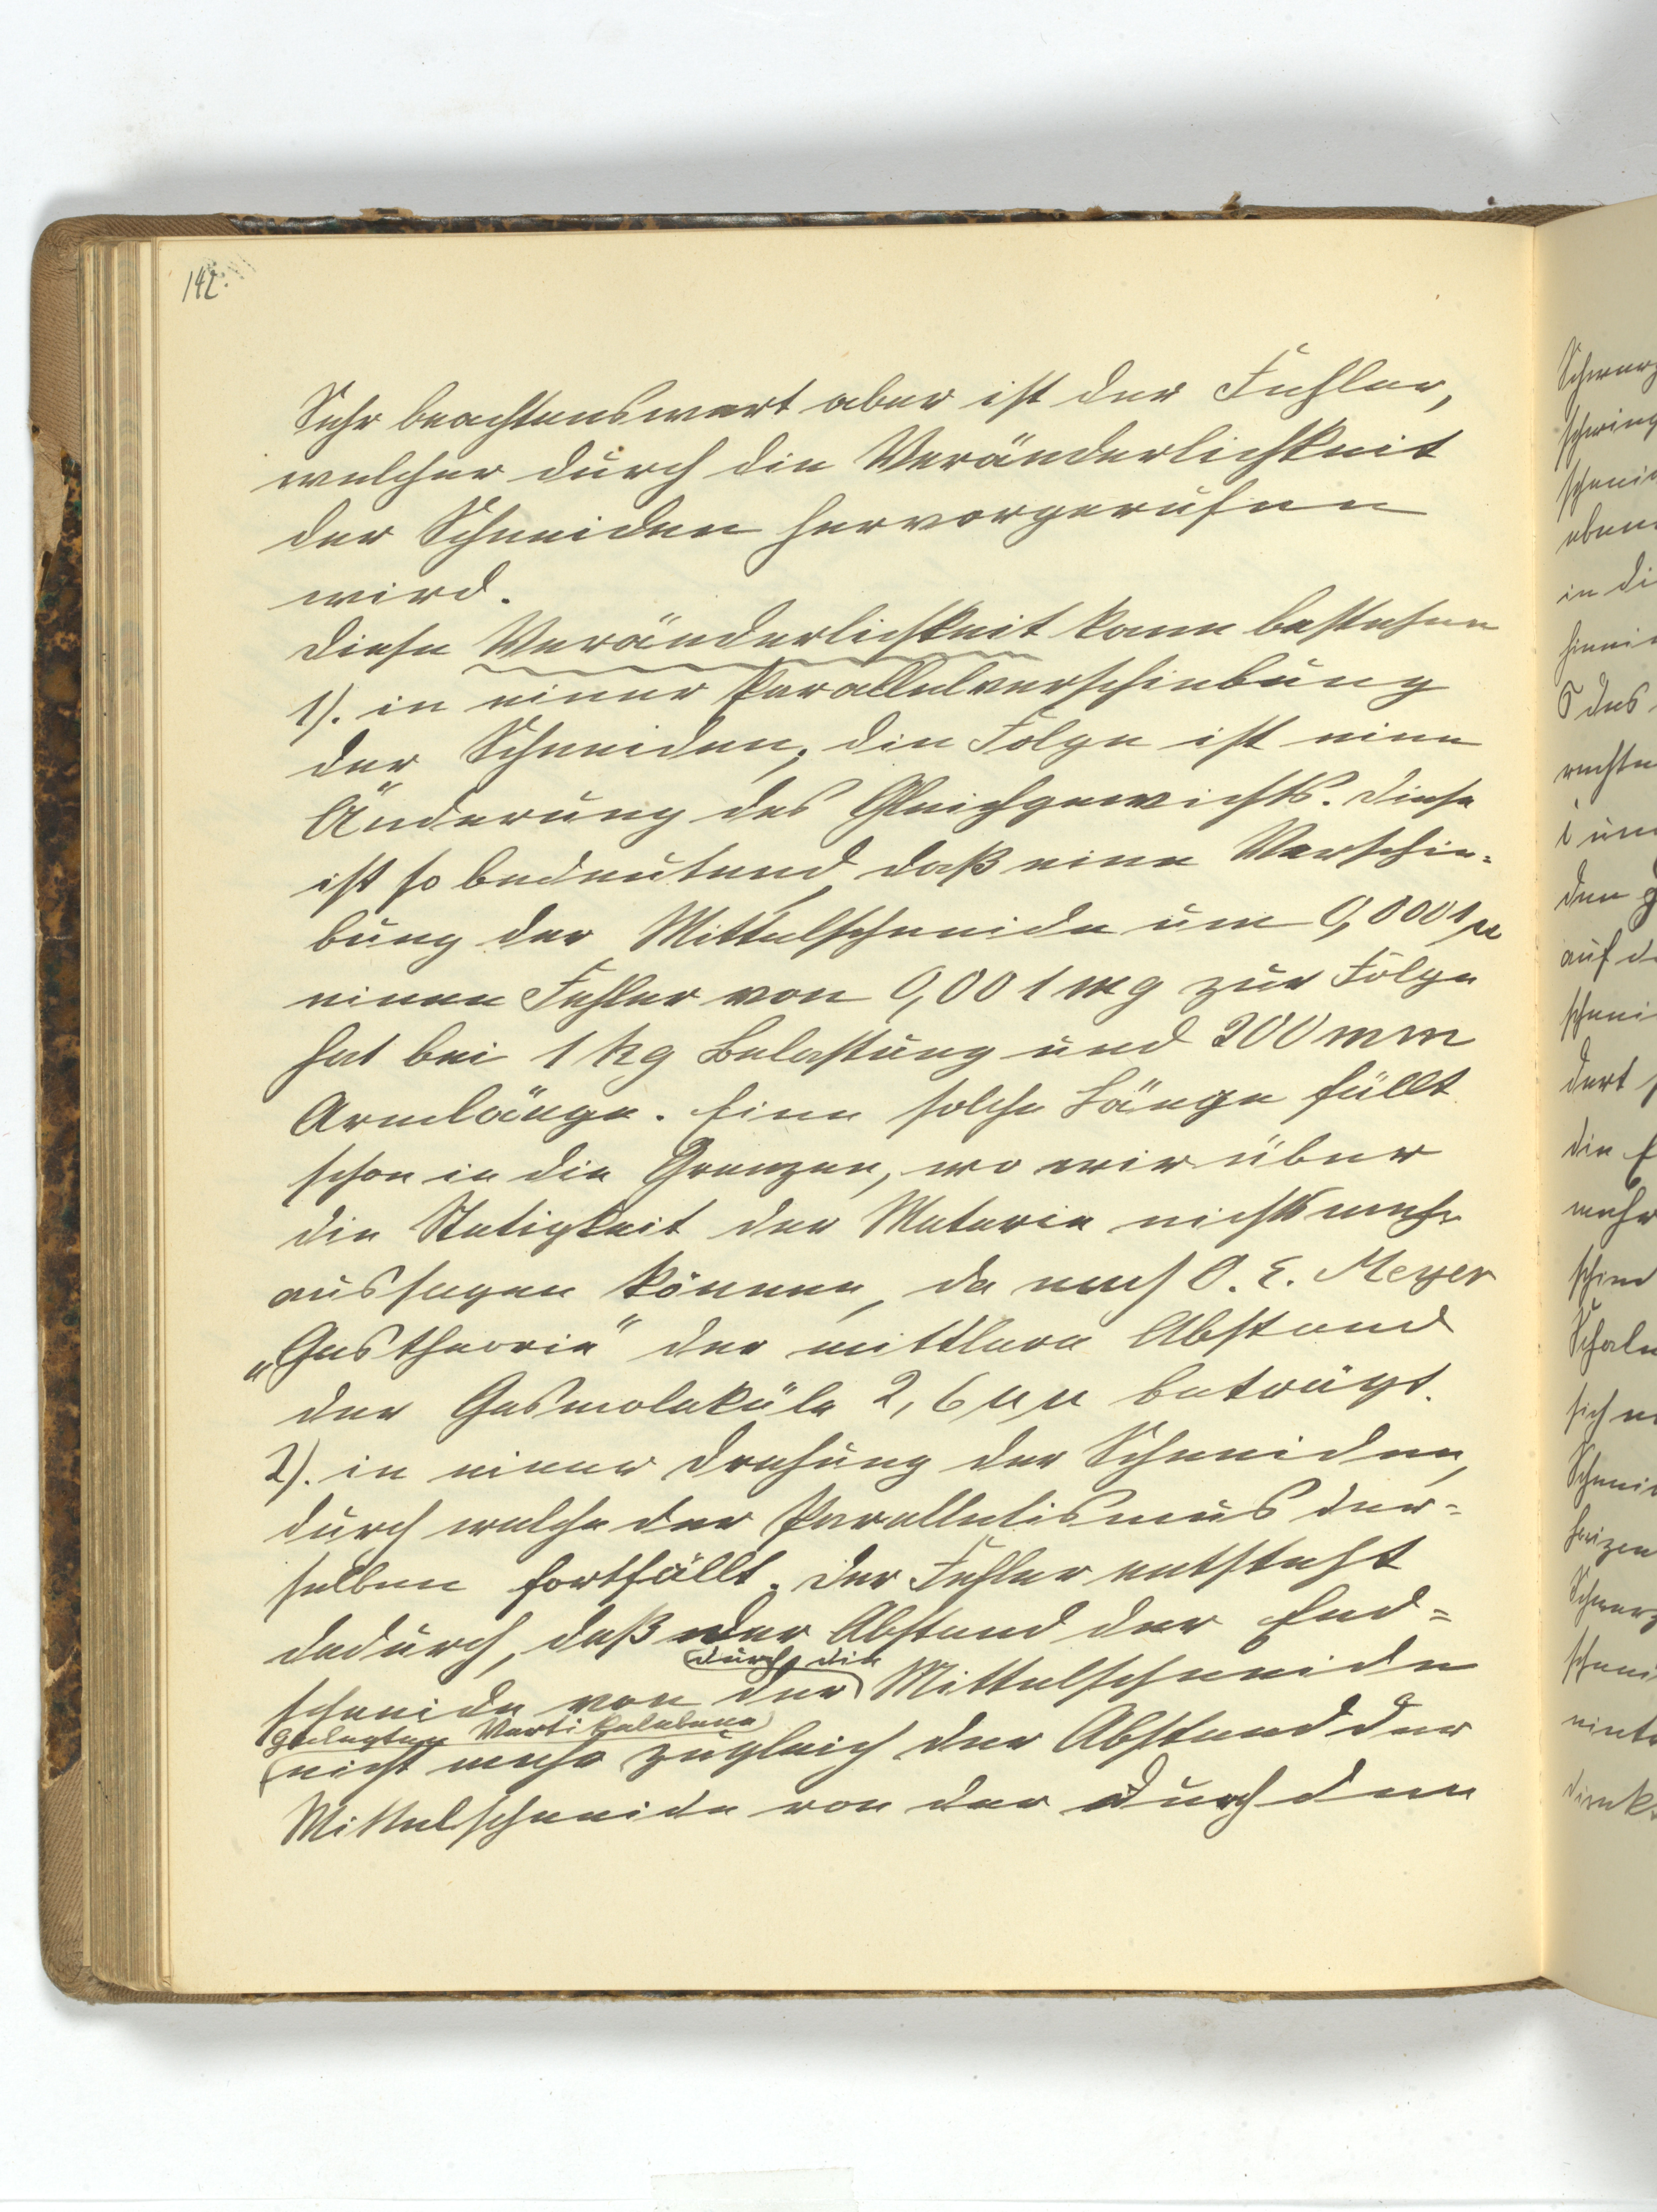 142.
Sehr beachtenswert aber ist der Fehler,
welcher durch die Veränderlichkeit
der Schneiden hervorgerufen
wird.
Diese Veränderlichkeit kann bestehen
1). in einer Parallelverschiebung
der Schneiden; die Folge ist eine
Änderung des Gleichgewichts. Diese
ist so bedeutend, daß eine Verschie=
bung der Mittelschneide um 0,0001 µ
einen Fehler von 0,001 mg zur Folge
hat bei 1 kg Belastung und 200 mm
Armlänge. Eine solche Länge fällt
schon in die Grenzen, wo wir über
die Stetigkeit der Materie nichts mehr
aussagen können, da nach O. E. Meyer
„Gastheorie" der mittlere Abstand
der Gasmoleküle 2,6 µµ beträgt.
2). in einer Drehung der Schneiden,
durch welche der Parallelismus der=
selben fortfällt. Der Fehler entsteht
dadurch, daß der Abstand der End=
durch die
schneide von der Mittelschneide
gelegten Vertikalebene
nicht mehr zugleich der Abstand der
Mittelschneide von der durch den
Schwerz
schwing
schneid
eben
in di
hinein
S des
rechten
i un
den g
auf d
schnei
dert
die E
mehr
schied
Schale
sich n
Schneid
heizen
Schwerz
schnei
einte
direkt